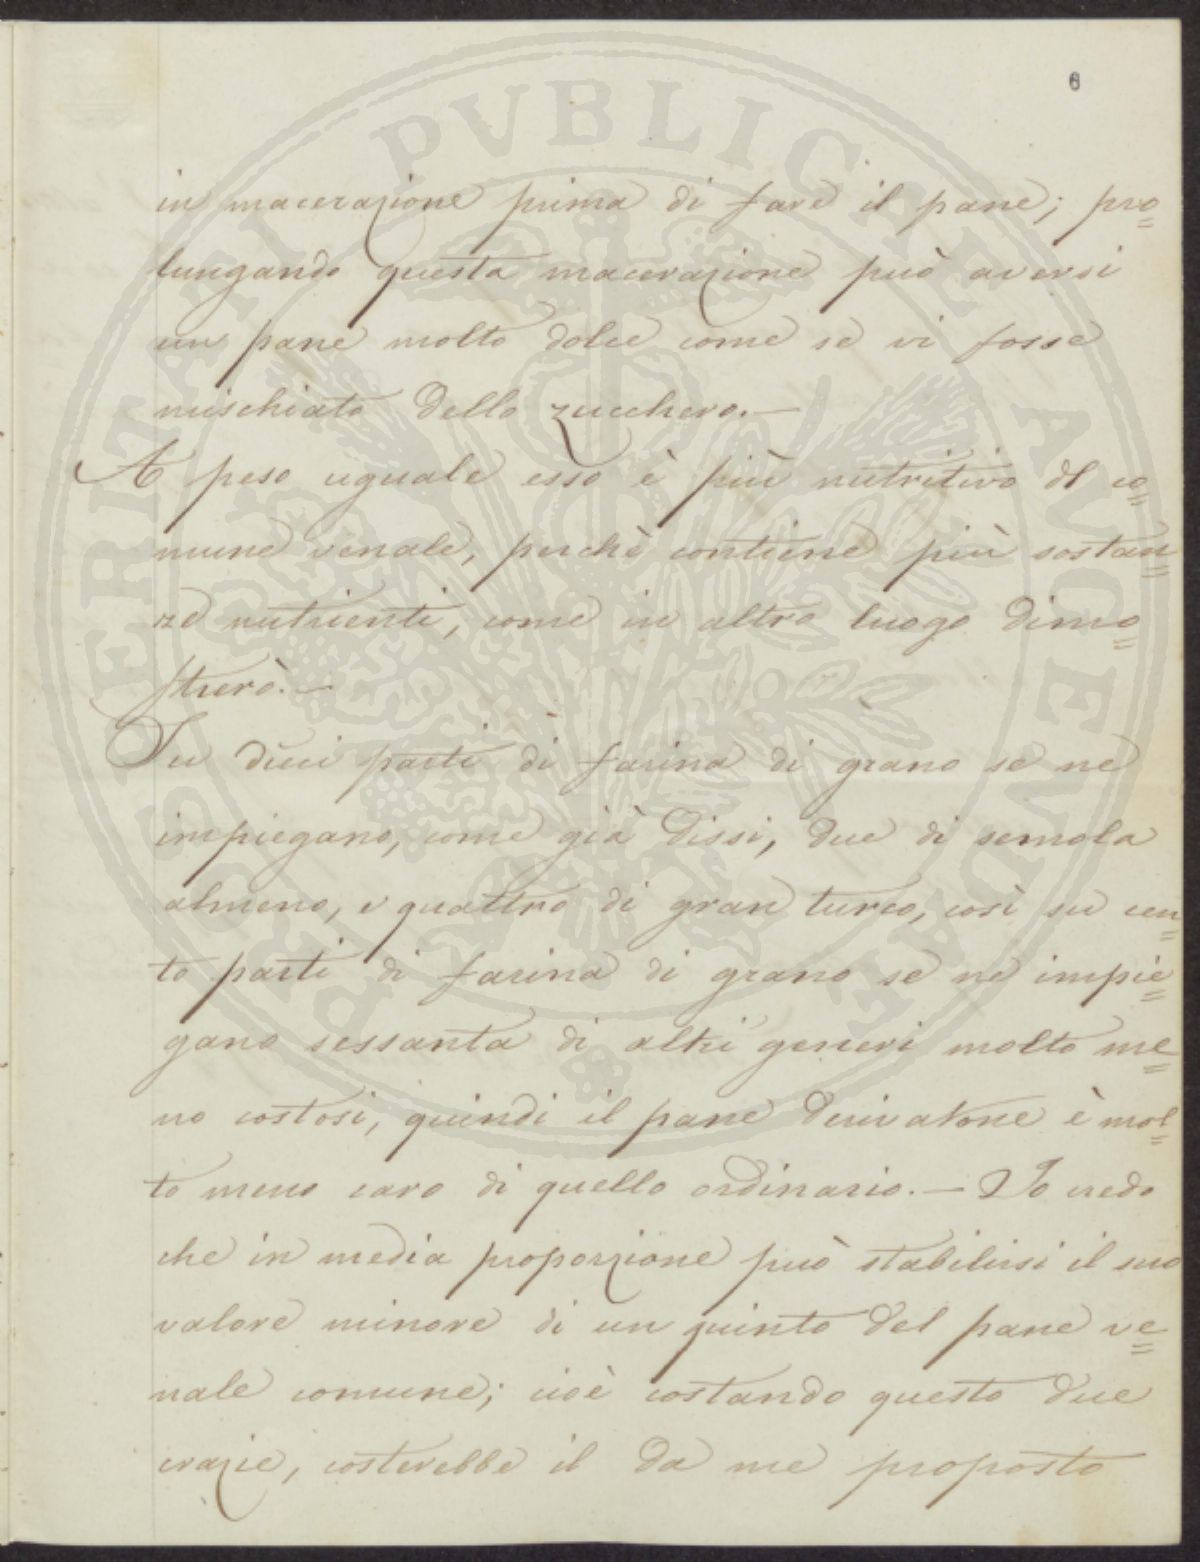 6
in macerazione prima di fare il pane; pro=
lungando questa macerazione può aversi
un pane molto dolce come se vi fosse
mischiato dello zucchero.—
A peso uguale esso è più nutritivo del co=
mune venale, perchè contiene più sostan=
ze nutrienti, come in altro luogo dimo=
strerò.—
Su dieci parti di farina di grano se ne
impiegano, come già dissi, due di semola
almeno, e quattro di gran turco, così su cen=
to parti di farina di grano se ne impie=
gano sessanta di altri generi molto me=
no costosi, quindi il pane derivatone è mol=
to meno caro di quello ordinario.— Io credo
che in media proporzione può stabilirsi il suo
valore minore di un quinto del pane ve=
nale comune; cioè costando questo due
crazie, costerebbe il da me proposto
PROSPERITATI PVBLICAE AVGENDAE